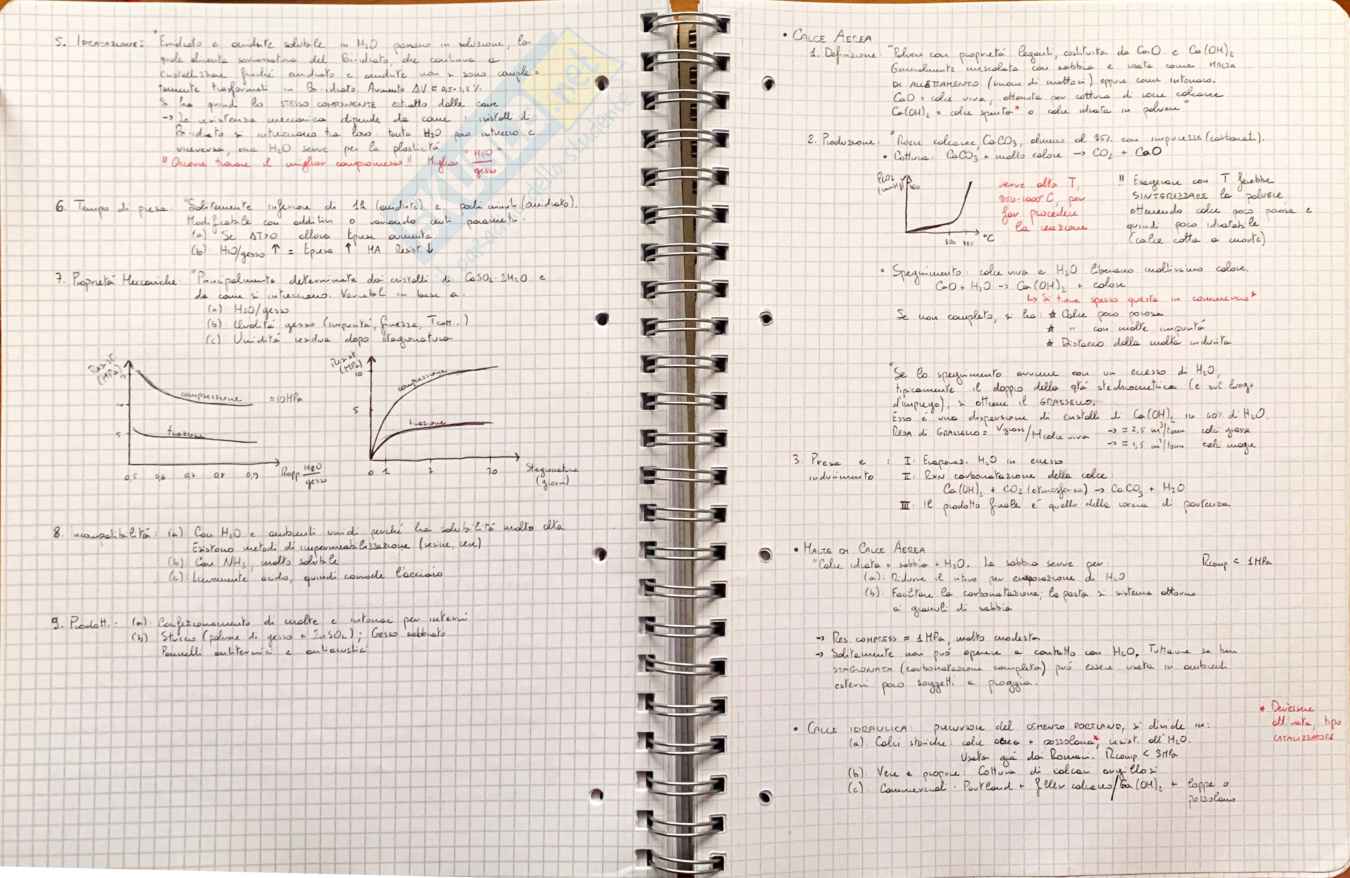 5. IDRATAZIONE: "Emidrato e anidrite solubile in H₂O passano in soluzione, la
quale diventa sovrasatura del Biidrato, che continua a
cristallizzare finché emidrato e anidrite non si sono comple-
tamente trasformati in Biidrato. Aumento ΔV = 0,5-1,5%.
Si ha quindi lo STESSO COMPONENTE estratto dalle cave
→ La resistenza meccanica dipende da come i cristalli di
Biidrato si intrecciano tra loro: tanta H₂O poco intreccio e
viceversa, ma H₂O serve per la plasticità
"Occorre trovare il miglior compromesso" Miglior "H₂O/gesso"
6. Tempo di presa: "Solitamente inferiore di 1h (emidrato) e pochi minuti (anidrite).
Modificabile con additivi o variando certi parametri.
(a) "Se ΔT>0 allora tpresa aumenta
(b) H₂O/gesso ↑ = tpresa ↑ MA Resist ↓
7. Proprietà Meccaniche "Principalmente determinata dai cristalli di CaSO₄·2H₂O e
da come si intrecciano. Variabili in base a:
(a) H₂O/gesso
(b) Qualità gesso (impurità, finezza, Tcott.)
(c) Umidità residua dopo stagionatura
Resist (MPa)
compressione ≈10MPa
5
trazione
0,5 0,6 0,7 0,8 0,9 Rapp H₂O/gesso
Resist (MPa)
10
compressione
5
trazione
0 1 7 Stagionatura (giorni)
8. incompatibilità: (a) Con H₂O e ambienti umidi perché ha solubilità molto alta
Esistono metodi di impermeabilizzazione (resine, cere)
(b) Con NH₃, molto solubile
(c) Lievemente acido, quindi corrode l'acciaio
9. Prodotti: (a) Confezionamento di malte e intonaci per interni
(b) Stucco (polvere di gesso + ZnSO₄); Gesso sabbiato
Pannelli antitermici e antiacustici
• CALCE AEREA
1. Definizione: "Polveri con proprietà leganti, costituita da CaO e Ca(OH)₂
Generalmente mescolata con sabbia e usata come MALTA
DI ALLETTAMENTO (unione di mattoni) oppure come intonaco.
CaO = calce viva, ottenuta per cottura di rocce calcaree
Ca(OH)₂ = calce spenta* o calce idrata in polvere"
2. Produzione: "Rocce calcaree, CaCO₃, almeno al 95% con impurezze (carbonati).
• Cottura: CaCO₃ + molto calore → CO₂ + CaO
°C
serve alta T,
900-1000°C, per
far procedere
la reazione
!! Esagerare con T farebbe
SINTERIZZARE la polvere
ottenendo calce poco porosa e
quindi poco idratabile
(calce cotta a morte)
• Spegnimento: calce viva e H₂O liberano moltissimo calore.
CaO + H₂O → Ca(OH)₂ + calore
↳ si trova spesso questa in commercio*
Se non completo, si ha: ★ Calce poco porosa
★ " con molte impurità
★ Distacco della malta indurita
"Se lo spegnimento avviene con un eccesso di H₂O,
tipicamente il doppio della qtà stechiometrica (e sul luogo
d'impiego), si ottiene il GRASSELLO.
Esso è una dispersione di cristalli di Ca(OH)₂ in 40% d'H₂O.
RESA DI GRASSELLO = Vgrass/Mcalce viva → = 2,5 m³/tonn calci grasse
→ = 1,5 m³/tonn calci magre
3. Presa e indurimento : I: Evaporaz. H₂O in eccesso
II: Rxn carbonatazione della calce
Ca(OH)₂ + CO₂ (atmosfera) → CaCO₃ + H₂O
III: Il prodotto finale è quello della roccia di partenza
• MALTE DI CALCE AEREA
"Calce idrata + sabbia + H₂O. La sabbia serve per: Rcomp < 1MPa
(a): Ridurre il ritiro per evaporazione di H₂O
(b): Facilitare la carbonatazione; la pasta si sistema attorno
ai granuli di sabbia
→ Res. COMPRESS = 1MPa, molto modesta
→ Solitamente non può operare a contatto con H₂O. Tuttavia se ben
STAGIONATA (carbonatazione completa) può essere usata in ambienti
esterni poco soggetti a pioggia.
• CALCE IDRAULICA: precursore del CEMENTO PORTLAND, si divide in:
(a) Calci storiche: calce aerea + POZZOLANA*, resist. all'H₂O.
Usata già dai Romani. Rcomp < 3MPa
(b) Vere e proprie: Cottura di calcari argillosi
(c) Commerciali: Portland + filler calcareo/Ca(OH)₂ + loppe o
pozzolane
* Derivazione
CATALIZZATORE